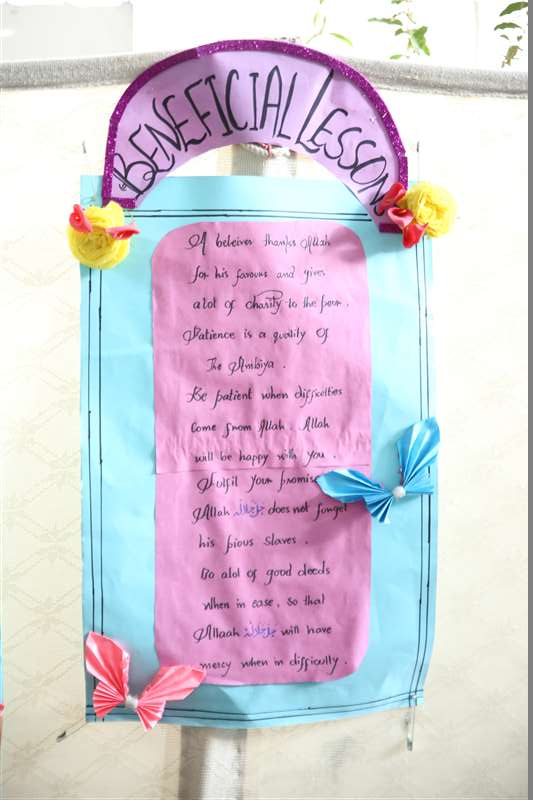 BENEFICIAL LESSON
A beleiver thanks Allah
for his favours and gives
alot of charity to the poor.
Patience is a quality of
The Ambiya.
Be patient when difficulties
Come from Allah. Allah
will be happy with you.
Fulfil your promise
Allah جل جلاله does not forget
his pious slaves.
Do alot of good deeds
When in ease, so that
Allaah جل جلاله will have
mercy when in difficulty.